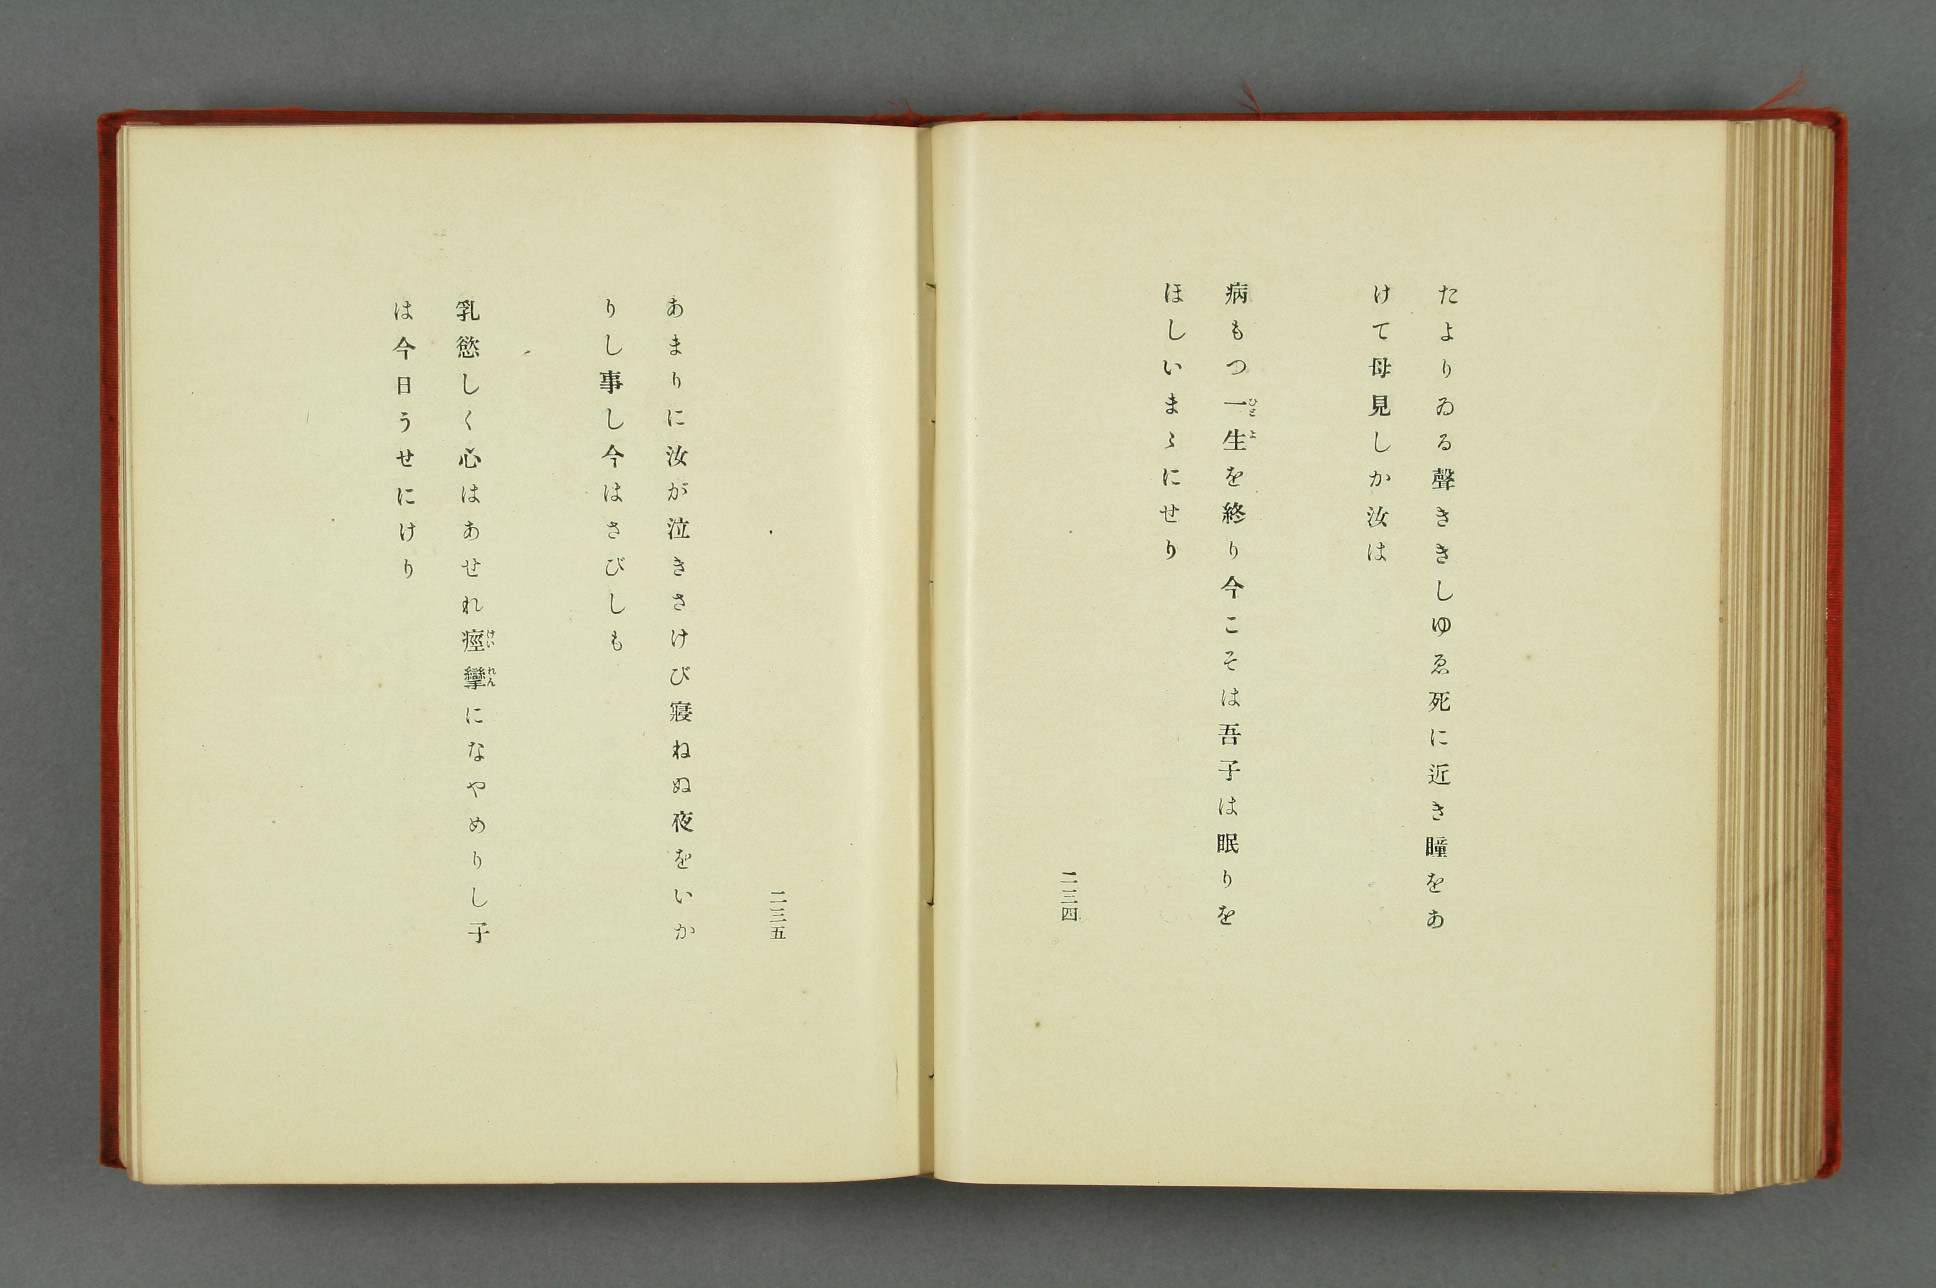 たよりゐる聲ききしゆゑ死に近き瞳をあ
けて母見しか汝は
病もつ一生を終り今こそは吾子は眠りを
ほしいまゝにせり
二三四
あまりに汝が泣きさけび寢ねぬ夜をいか
りし事し今はさびしも
乳慾しく心はあせれ痙攣になやめりし子
は今日うせにけり
二三五